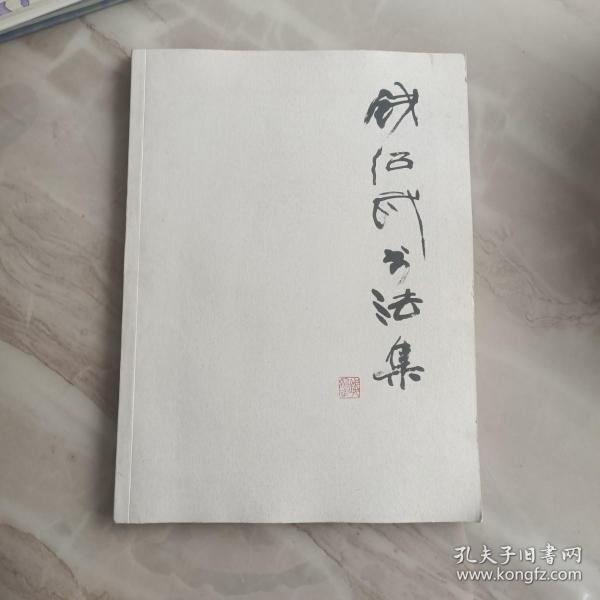 钱绍武书法集
孔夫子旧書网
www.kongfz.com